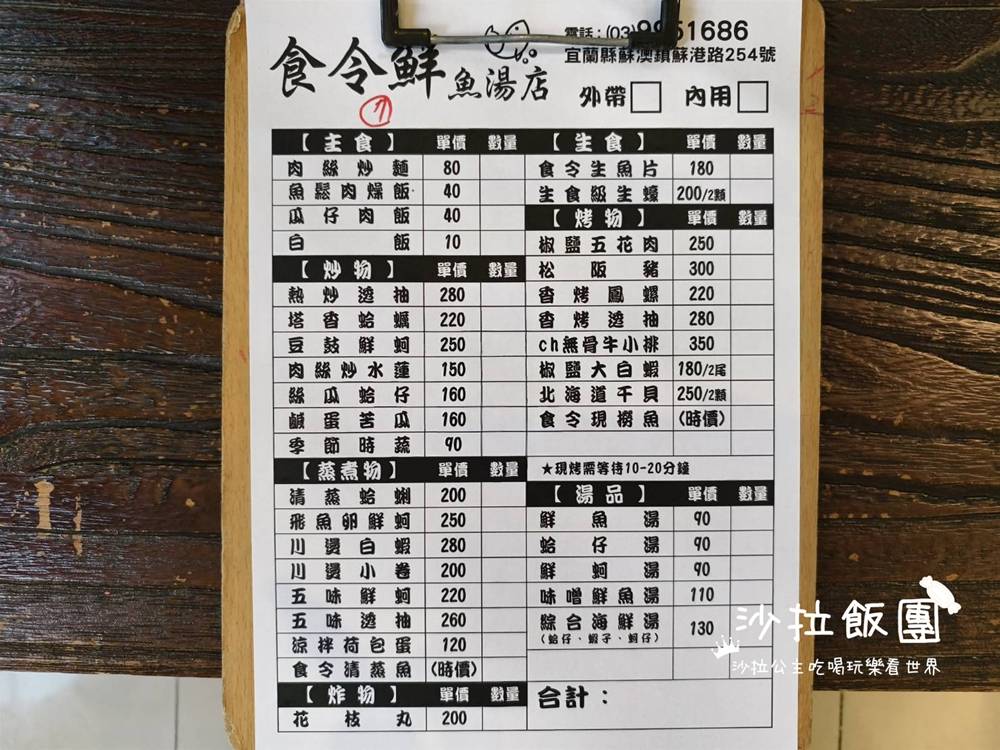 電話：(03)9951686
宜蘭縣蘇澳鎮蘇港路254號
食令鮮魚湯店
外帶 內用
7
【主食】 單價 數量
肉絲炒麵 80
魚鬆肉燥飯 40
瓜仔肉飯 40
白飯 10
【炒物】 單價 數量
熱炒透抽 280
塔香蛤蠣 220
豆鼓鮮蚵 250
肉絲炒水蓮 150
絲瓜蛤仔 160
鹹蛋苦瓜 160
季節時蔬 90
【蒸煮物】 單價 數量
清蒸蛤蜊 200
飛魚卵鮮蚵 250
川燙白蝦 280
川燙小卷 200
五味鮮蚵 220
五味透抽 260
涼拌荷包蛋 120
食令清蒸魚 (時價)
【炸物】 單價 數量
花枝丸 200
【生食】 單價 數量
食令生魚片 180
生食級生蠔 200/2顆
【烤物】 單價 數量
椒鹽五花肉 250
松阪豬 300
香烤鳳螺 220
香烤透抽 280
ch無骨牛小排 350
椒鹽大白蝦 180/2尾
北海道干貝 250/2顆
食令現撈魚 (時價)
★現烤需等待10-20分鐘
【湯品】 單價 數量
鮮魚湯 90
蛤仔湯 90
鮮蚵湯 90
味噌鮮魚湯 110
綜合海鮮湯 130
(蛤仔、蝦子、蚵仔)
合計：
沙拉飯團
沙拉公主吃喝玩樂看世界